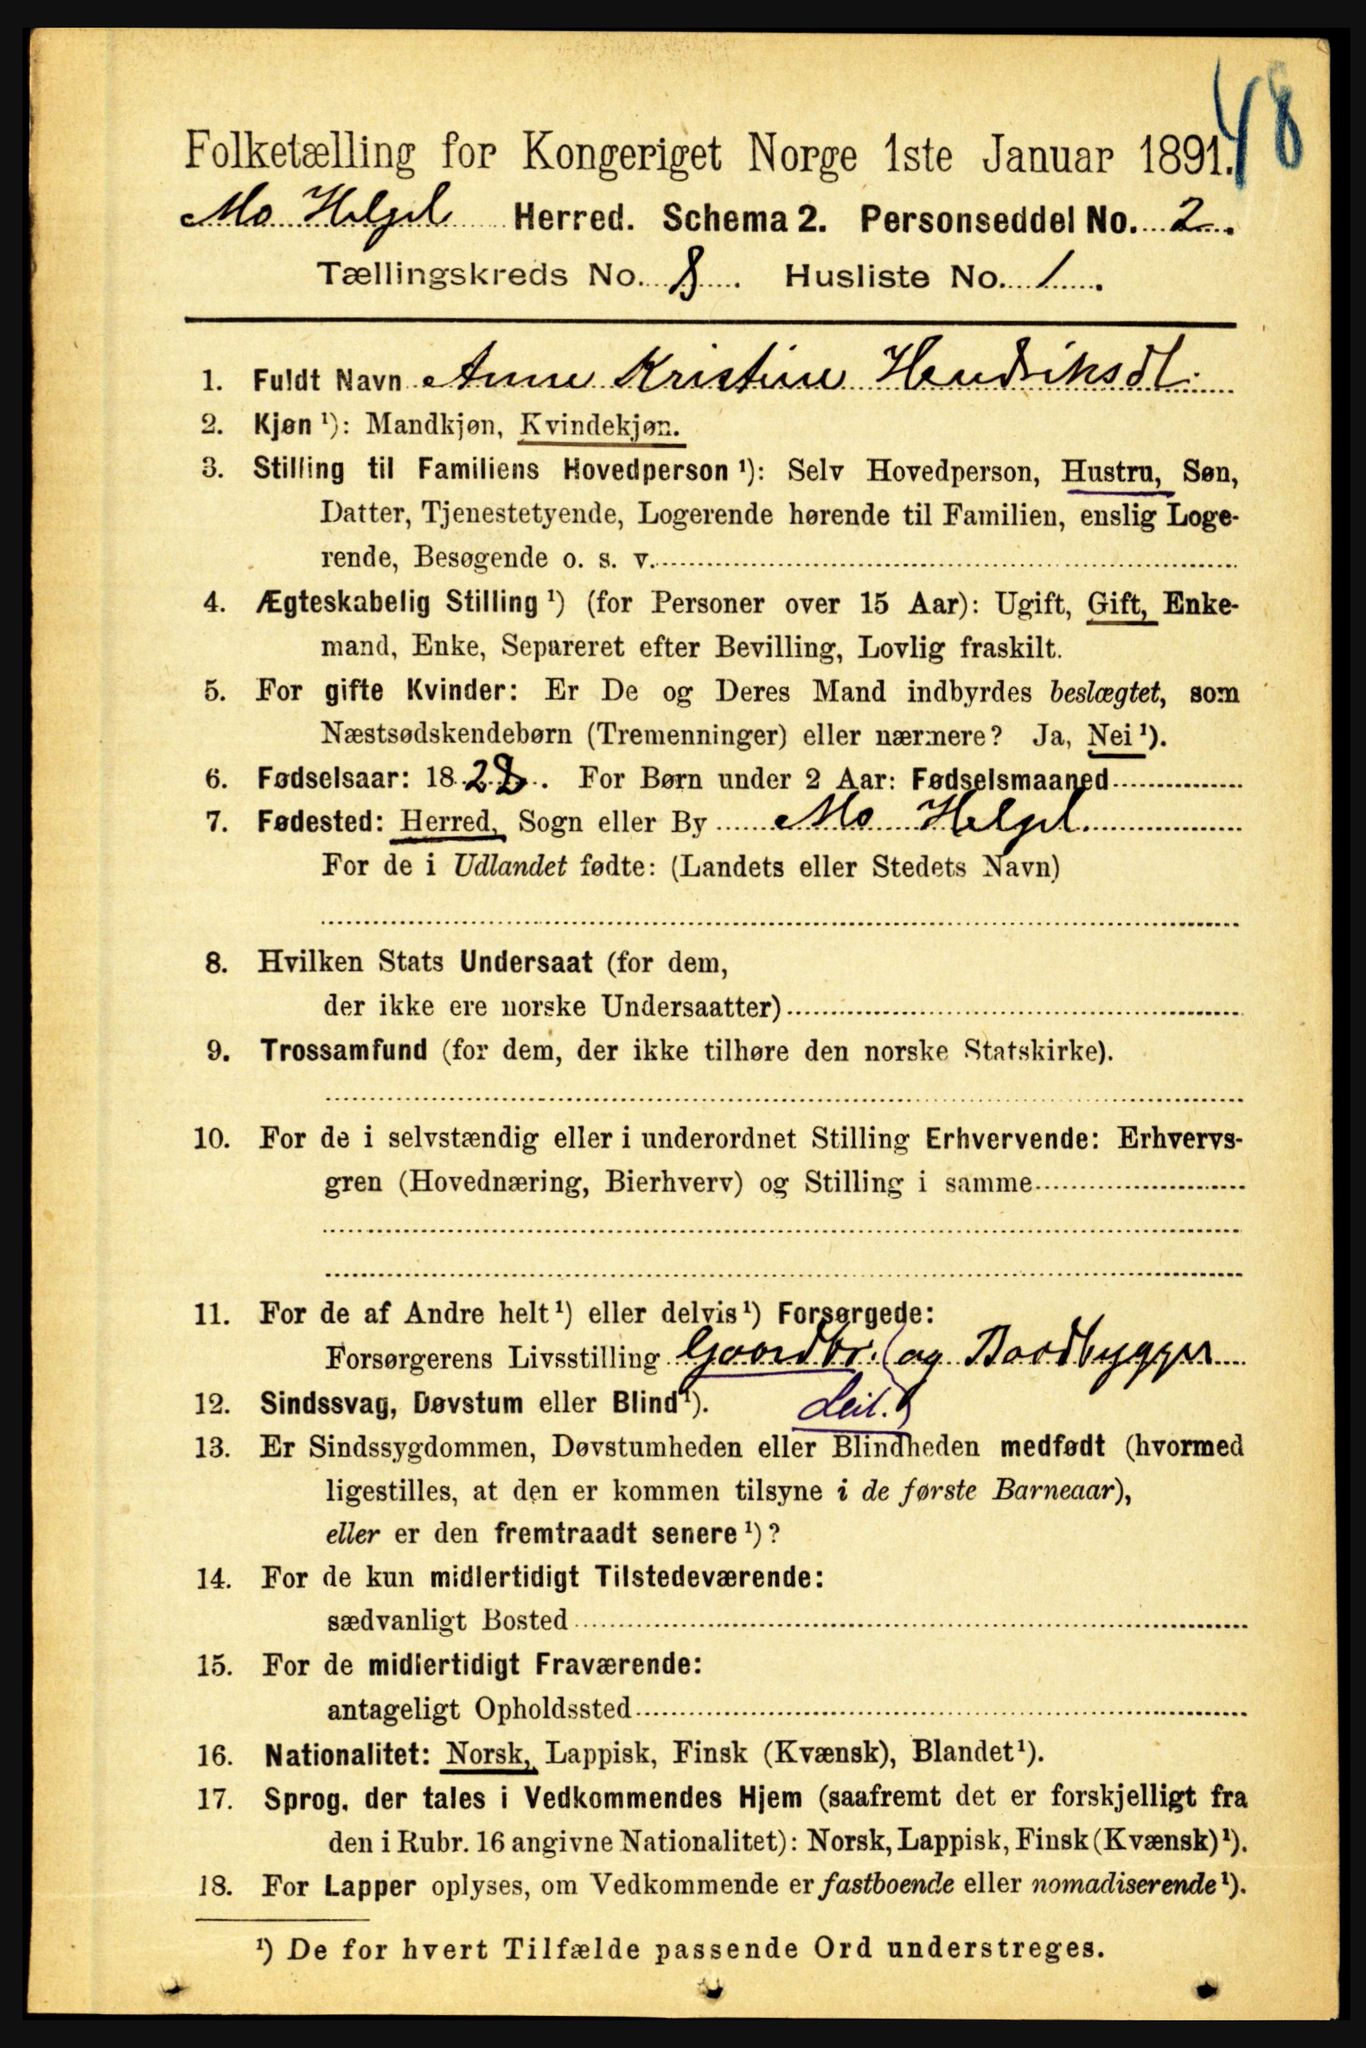 48
Folketælling for Kongeriget Norge 1ste Januar 1891.
Mo Helgel Herred. Schema 2. Personseddel No. 2.
Tællingskreds No. 8. Husliste No. 1.
1. Fuldt Navn Anne Kristine Hendriksdt.
2. Kjøn ¹): Mandkjøn, Kvindekjøn.
3. Stilling til Familiens Hovedperson ¹): Selv Hovedperson, Hustru, Søn,
Datter, Tjenestetyende, Logerende hørende til Familien, enslig Loge-
rende, Besøgende o. s. v.
4. Ægteskabelig Stilling ¹) (for Personer over 15 Aar): Ugift, Gift, Enke-
mand, Enke, Separeret efter Bevilling, Lovlig fraskilt.
5. For gifte Kvinder: Er De og Deres Mand indbyrdes beslægtet, som
Næstsødskendebørn (Tremenninger) eller nærmere? Ja, Nei ¹).
6. Fødselsaar: 1828. For Børn under 2 Aar: Fødselsmaaned
7. Fødested: Herred, Sogn eller By Mo Helgel.
For de i Udlandet fødte: (Landets eller Stedets Navn)
8. Hvilken Stats Undersaat (for dem,
der ikke ere norske Undersaatter)
9. Trossamfund (for dem, der ikke tilhøre den norske Statskirke).
10. For de i selvstændig eller i underordnet Stilling Erhvervende: Erhvervs-
gren (Hovednæring, Bierhverv) og Stilling i samme
11. For de af Andre helt ¹) eller delvis ¹) Forsørgede:
Forsørgerens Livsstilling Gaardbr. og Baadbygger
Leil.
12. Sindssvag, Døvstum eller Blind ¹).
13. Er Sindssygdommen, Døvstumheden eller Blindheden medfødt (hvormed
ligestilles, at den er kommen tilsyne i de første Barneaar),
eller er den fremtraadt senere ¹)?
14. For de kun midlertidigt Tilstedeværende:
sædvanligt Bosted
15. For de midlertidigt Fraværende:
antageligt Opholdssted
16. Nationalitet: Norsk, Lappisk, Finsk (Kvænsk), Blandet ¹).
17. Sprog, der tales i Vedkommendes Hjem (saafremt det er forskjelligt fra
den i Rubr. 16 angivne Nationalitet): Norsk, Lappisk, Finsk (Kvænsk) ¹).
18. For Lapper oplyses, om Vedkommende er fastboende eller nomadiserende ¹).
¹) De for hvert Tilfælde passende Ord understreges.